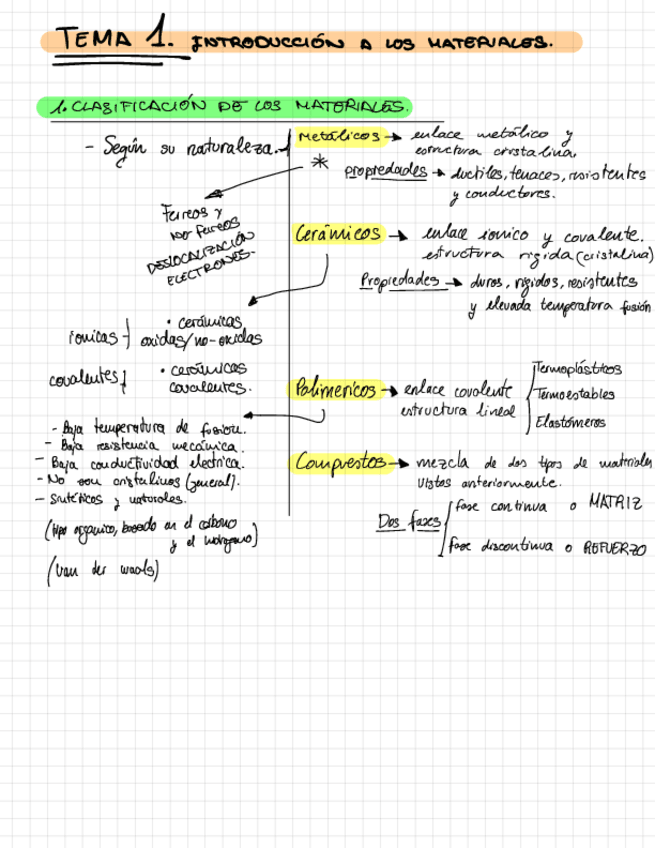 TEMA 1. INTRODUCCIÓN A LOS MATERIALES.
1. CLASIFICACIÓN DE LOS MATERIALES.
- Según su naturaleza.
Metálicos → enlace metálico y
estructura cristalina.
*
Propiedades → ductiles, tenaces, resistentes
y conductores.
Ferreos y
no ferreos
DESLOCALIZACIÓN
ELECTRONES.
Cerámicos → enlace ionico y covalente.
estructura rigida (cristalina)
Propiedades → duros, rigidos, resistentes
y elevada temperatura fusión
ionicas
• cerámicas
oxidas/no-oxidas
covalentes
• cerámicas
covalentes.
Polimericos → enlace covalente
estructura lineal
Termoplásticos
Termoestables
Elastómeros
- Baja temperatura de fusion.
- Baja resistencia mecánica.
- Baja conductividad electrica.
- No son cristalinos (general).
- Sintéticos y naturales.
(tipo organico, basado en el carbono
y el hidrogeno)
(van der waals)
Compuestos → mezcla de dos tipos de materiales
vistos anteriormente.
Dos fases
fase continua o MATRIZ
fase discontinua o REFUERZO